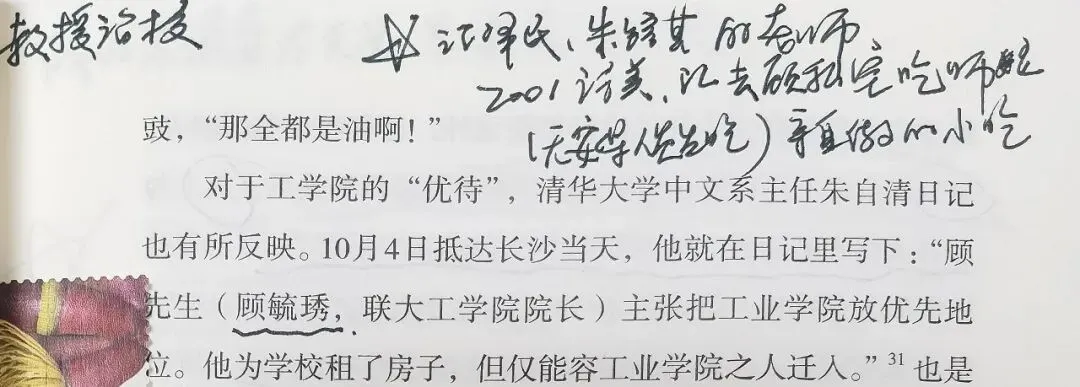 教授治校
江泽民、朱镕基的老师
2001访美、江去顾私宅吃师母
(无安保人员先吃)亲自做的小吃
豉，“那全都是油啊！”
对于工学院的“优待”，清华大学中文系主任朱自清日记
也有所反映。10月4日抵达长沙当天，他就在日记里写下：“顾
先生（顾毓琇，联大工学院院长）主张把工业学院放优先地
位。他为学校租了房子，但仅能容工业学院之人迁入。”31 也是